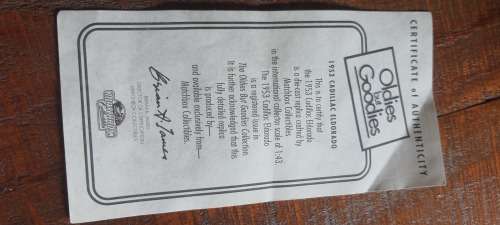 CERTIFICATE of AUTHENTICITY
Oldies
Goodies
1953 CADILLAC ELDORADO
This is to certify that
the 1953 Cadillac Eldorado
is a die-cast replica crafted by
Matchbox Collectibles
in the international collector scale of 1:43.
The 1953 Cadillac Eldorado
is a registered issue in
The Oldies But Goodies Collection
It is further acknowledged that this
fully detailed replica
is produced by
and available exclusively from—
Matchbox Collectibles.
MATCHBOX COLLECTIBLES